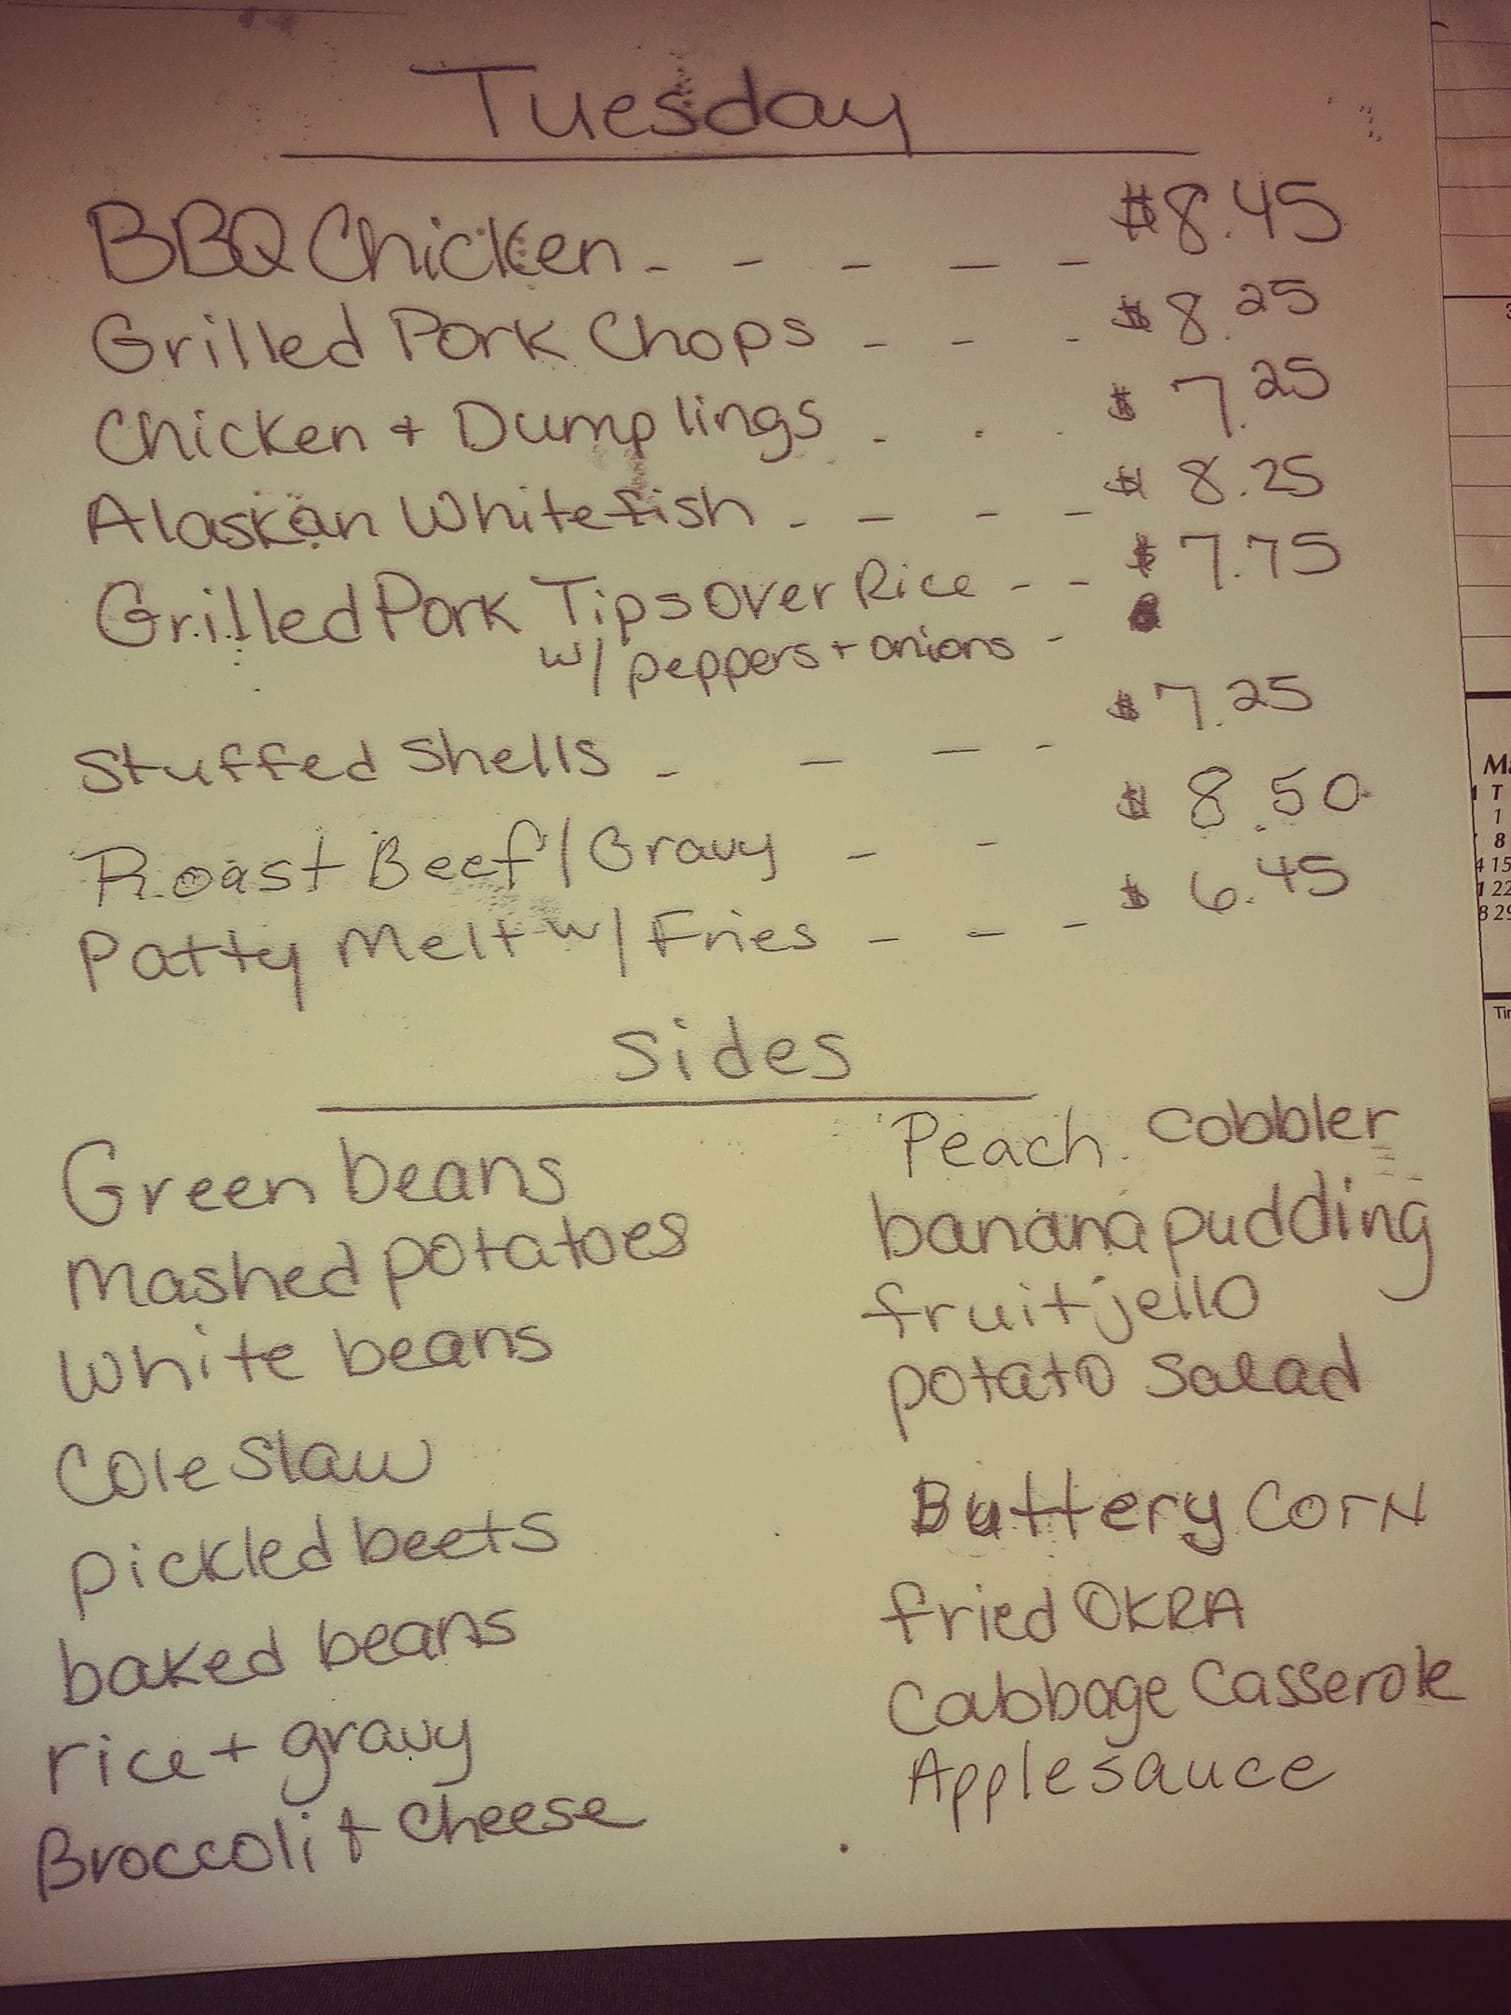 Tuesday
BBQ Chicken - - - - - $8.45
Grilled Pork Chops - - - $8.25
Chicken + Dumplings - - - $7.25
Alaskan Whitefish - - - - $8.25
Grilled Pork Tips Over Rice - - $7.75
w/ peppers + onions -
Stuffed Shells - - - - $7.25
Roast Beef/Gravy - - $8.50
Patty Melt w/ Fries - - - $6.45
Sides
Green beans
Mashed potatoes
White beans
Cole Slaw
Pickled beets
baked beans
rice + gravy
Broccoli + Cheese
Peach Cobbler
banana pudding
fruit jello
potato Salad
Buttery Corn
fried OKRA
Cabbage Casserole
Applesauce
Ma
T
1
8
4 15
1 22
8 29